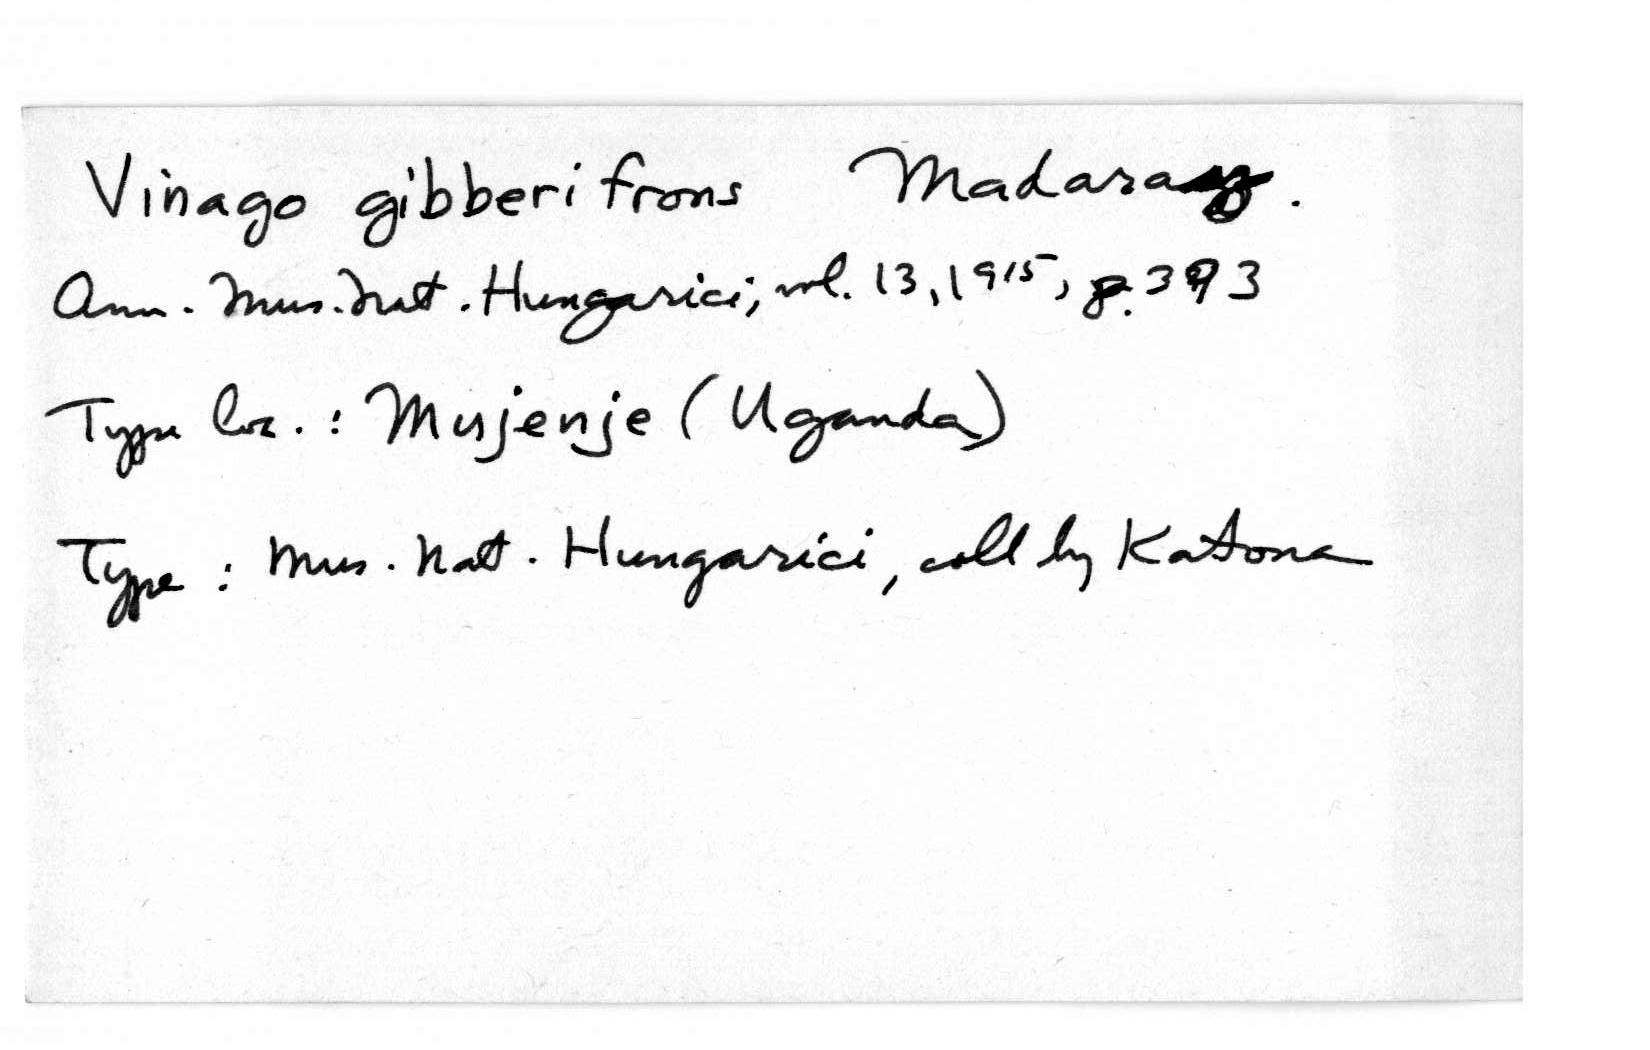 Vinago gibberifrons Madarasz.
Ann. Mus. Nat. Hungarici, vol. 13, 1915, p. 393
Type loc. : Mujenje (Uganda)
Type : Mus. Nat. Hungarici, coll by Katona